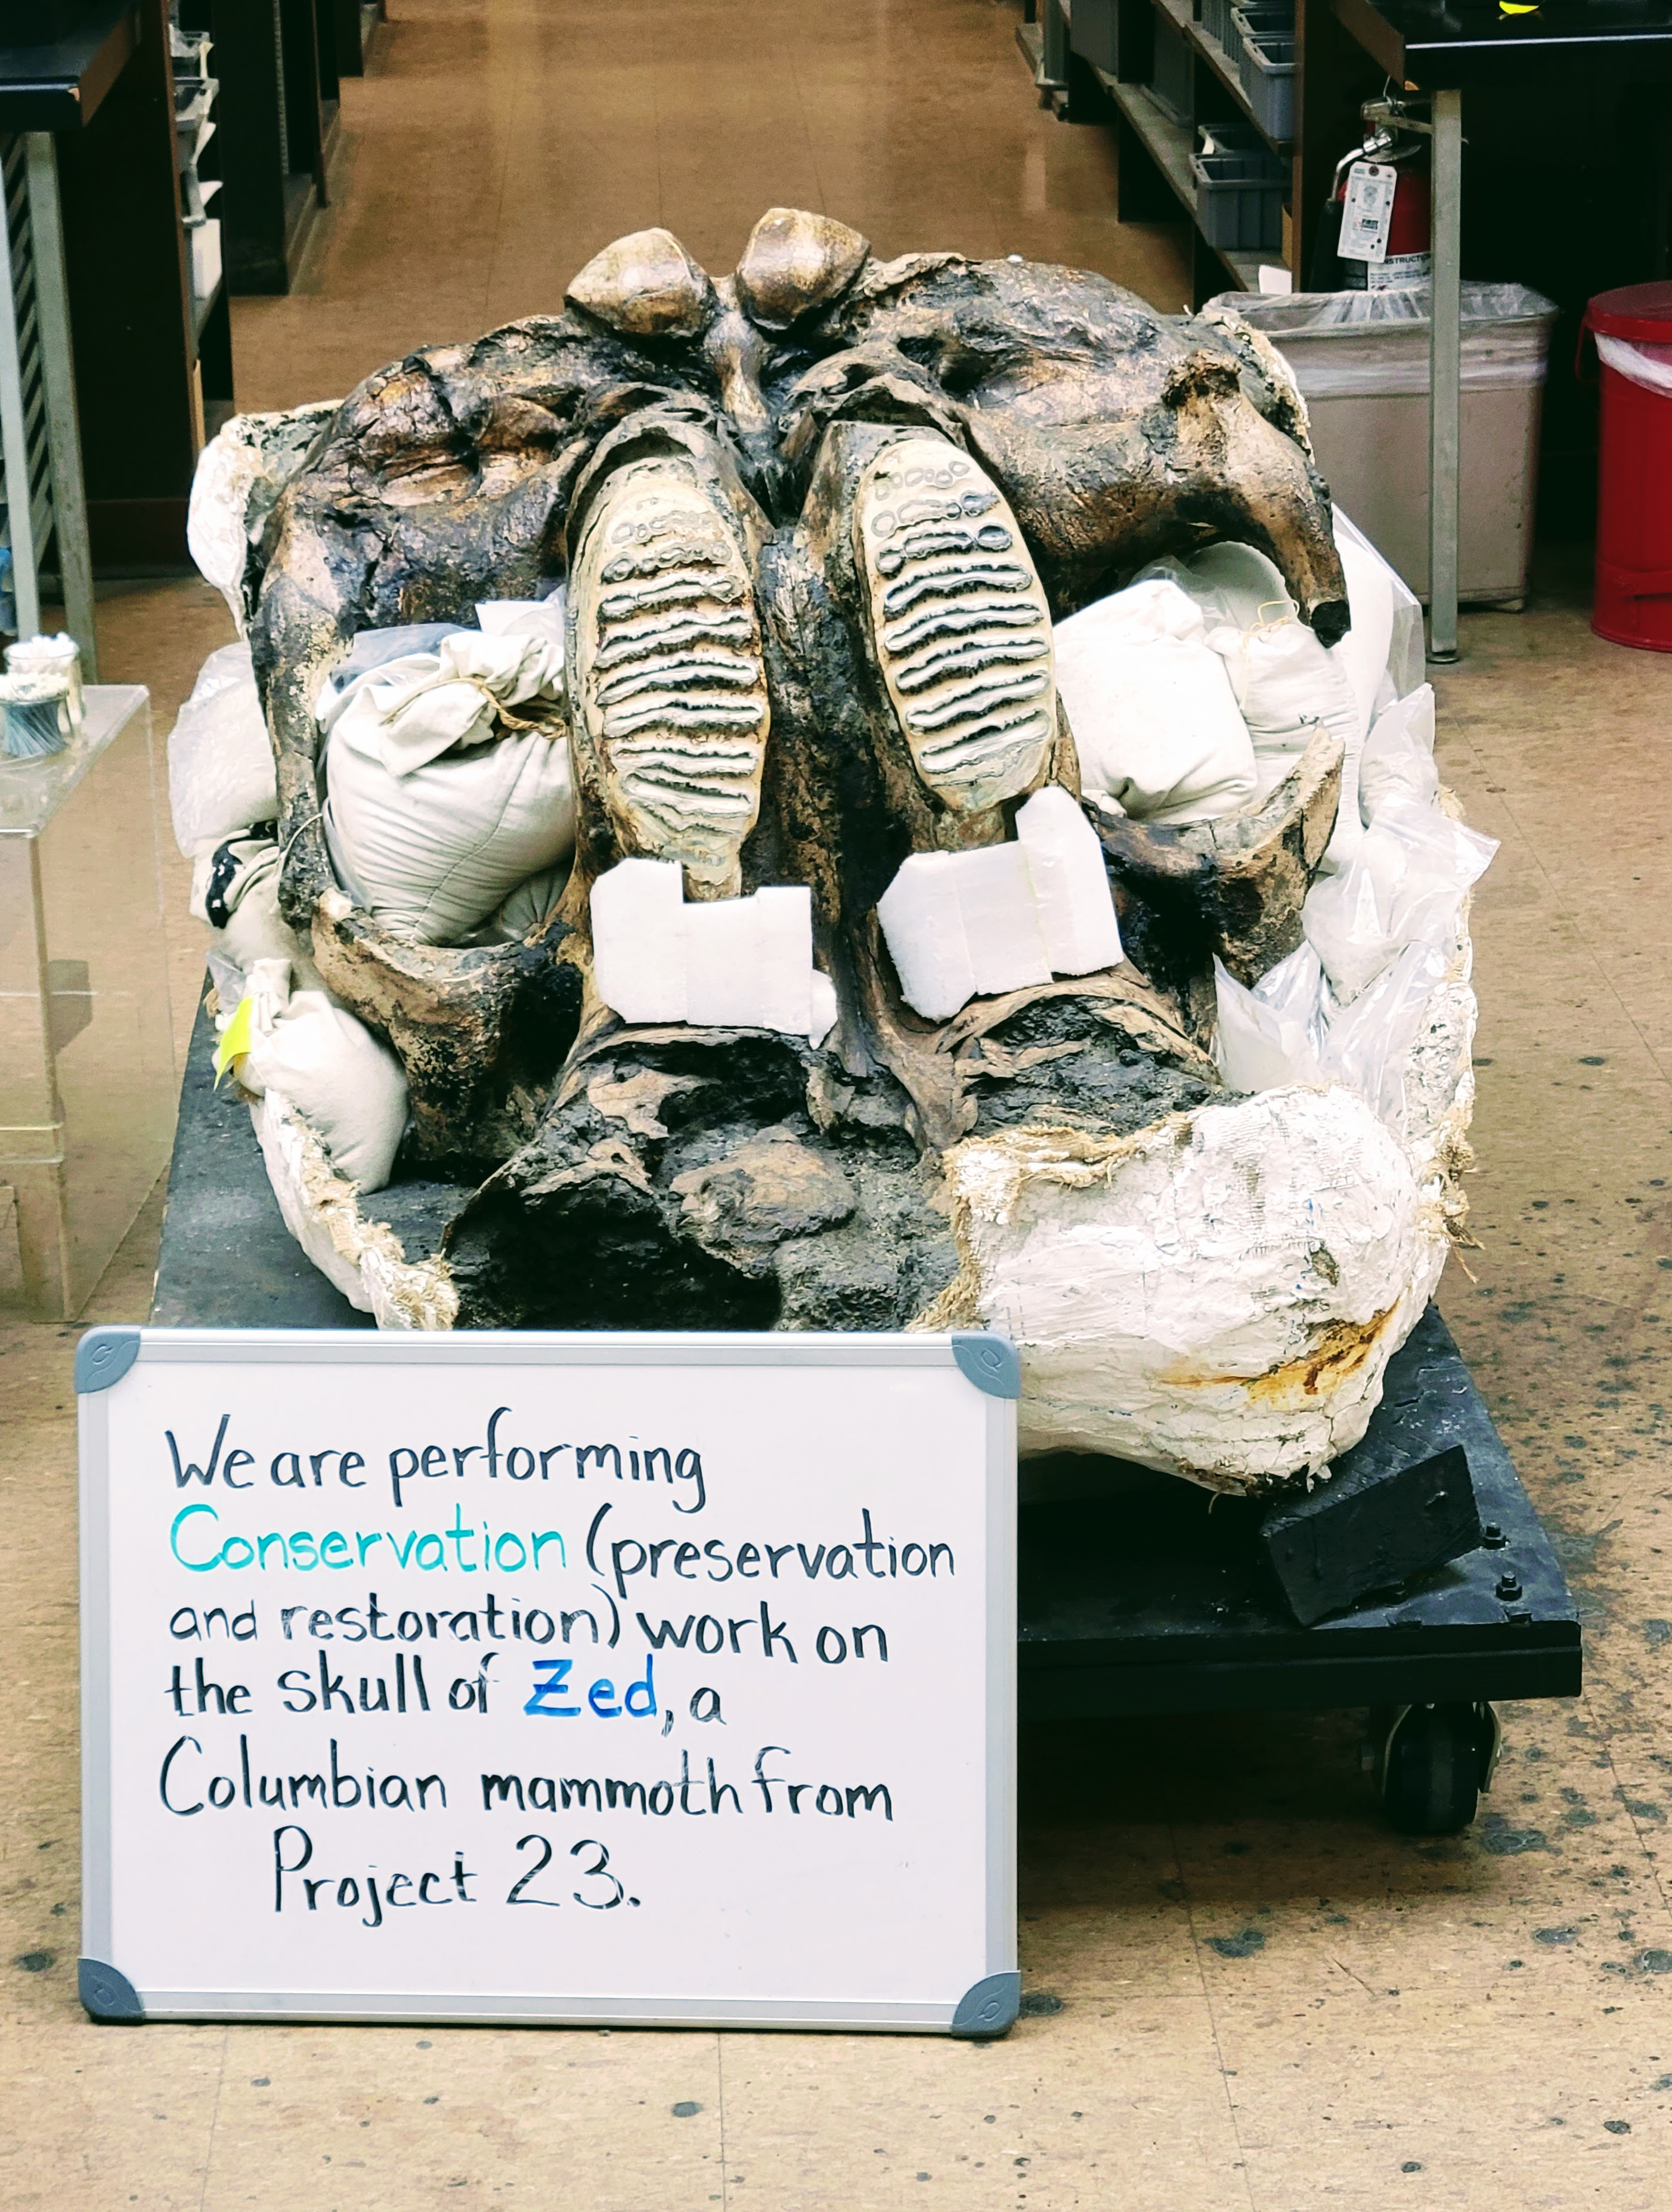 FIRST
INSTRUCTIONS
We are performing
Conservation (preservation
and restoration) work on
the skull of Zed, a
Columbian mammoth from
Project 23.